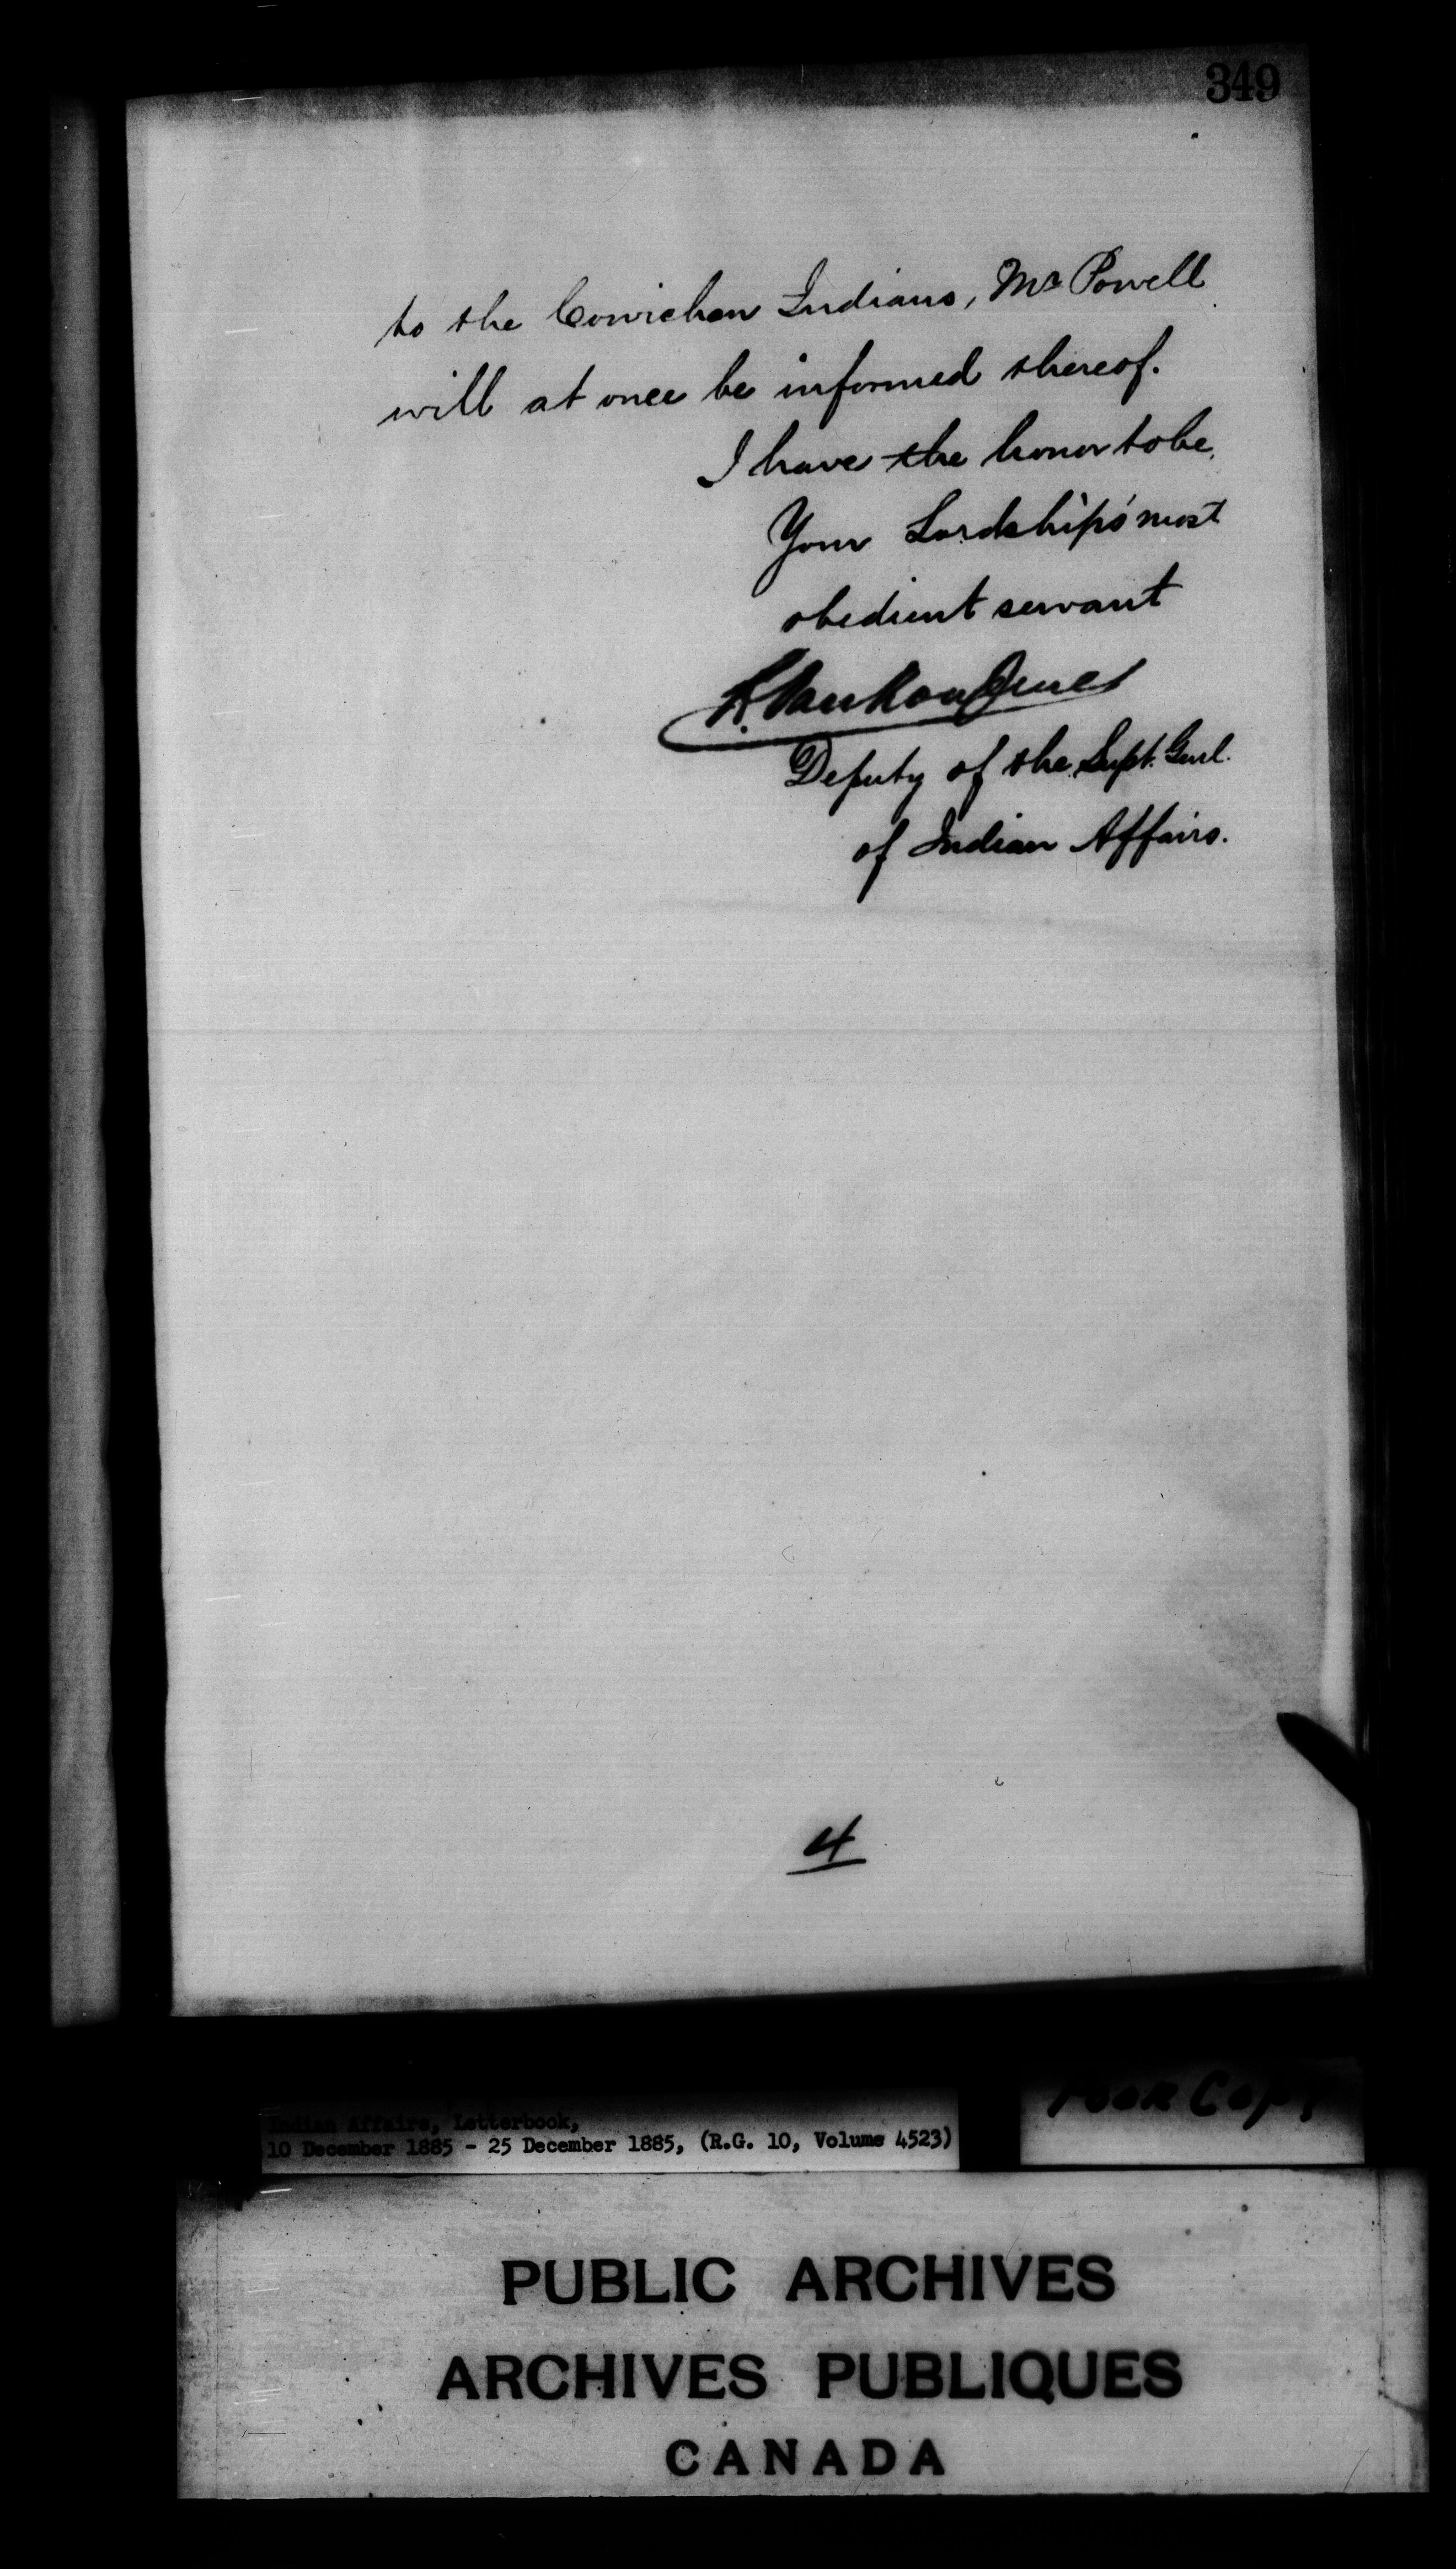 349
to the Cowichan Indians, Mr Powell
will at once be informed thereof.
I have the honor to be,
Your Lordship's most
obedient servant
L. VanKoughnet
Deputy of the Supt. Genl.
of Indian Affairs.
4
Indian Affairs, Letterbook,
10 December 1885 - 25 December 1885, (R.G. 10, Volume 4523)
Poor Copy
PUBLIC ARCHIVES
ARCHIVES PUBLIQUES
CANADA